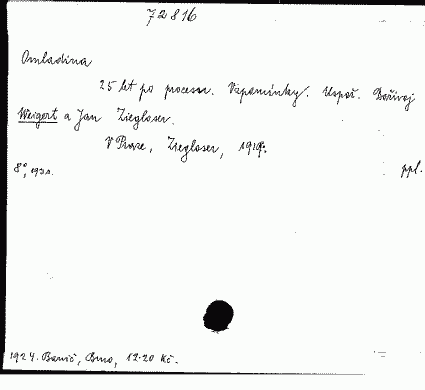 72816
Omladina
25 let po procesu. Vzpomínky. Uspoř. Bořivoj
Weigert a Jan Ziegloser.
V Praze, Ziegloser, 1919.
8°, 193 s. ppl.
1924. Barvič, Brno, 12.20 Kč.